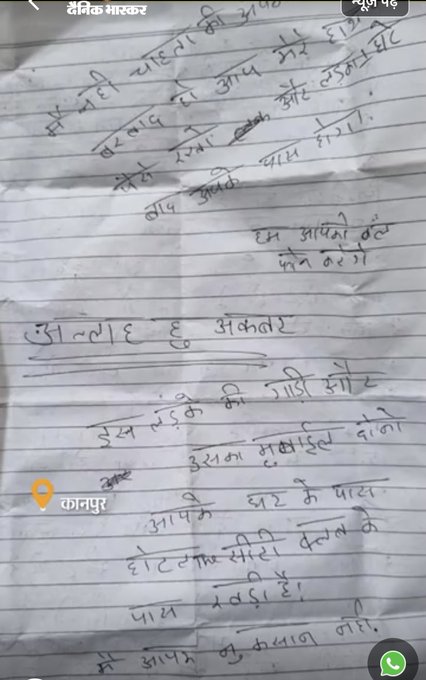 दैनिक भास्कर
न्यूज़ पढ़ें
मैं नही चाहता की आपका
बरबाद हो आप मेरे हाथ
पैसे रखो और लड़का घंटे
बाद आपके पास होगा।
हम आपको कॅल
फोन करेगे
अल्लाह हु अकबर
इस लड़के की गाड़ी और
उसका मुबाईल दोनो
आपके घर के पास
होटल The सीटी क्लब के
पास खड़ी है।
मैं आपका नुकसान नही.
कानपुर